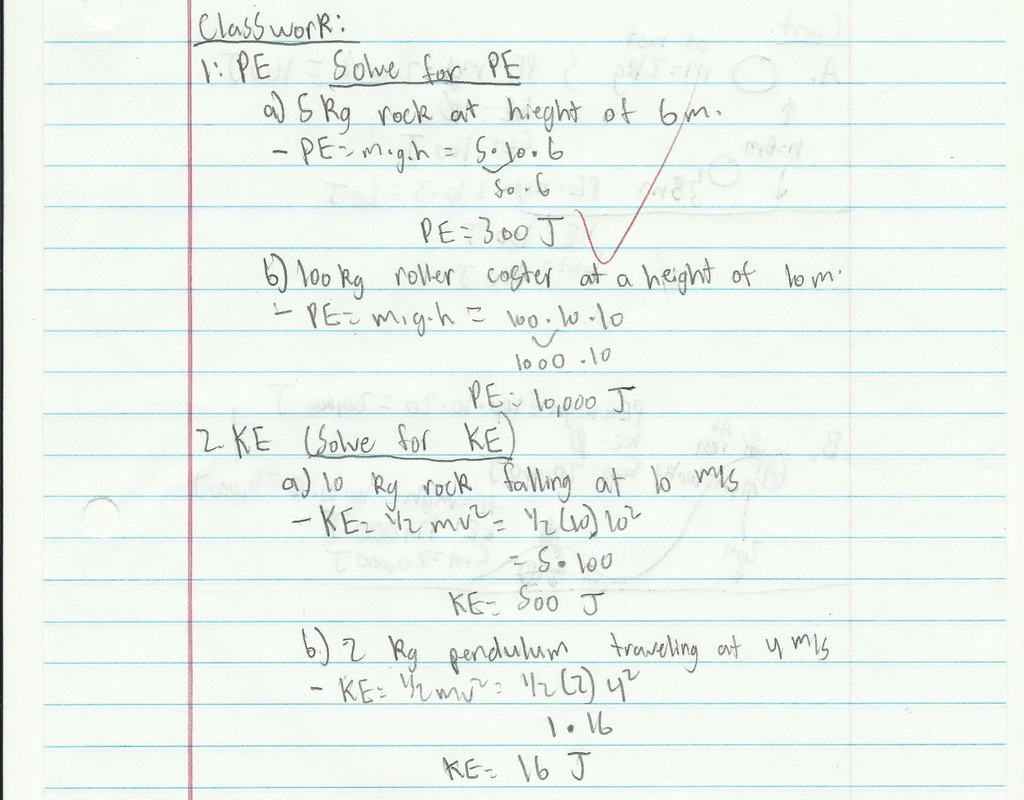 Classwork:
1: PE Solve for PE
a) 5 kg rock at hieght of 6 m.
- PE = m.g.h = 5.10.6
50.6
PE = 300 J
b) 100 kg roller coster at a height of 10 m.
- PE = m.g.h = 100.10.10
1000.10
PE = 10,000 J
2. KE (Solve for KE)
a) 10 kg rock falling at 10 m/s
- KE = 1/2 mv² = 1/2 (10) 10²
= 5 • 100
KE = 500 J
b.) 2 kg pendulum traveling at 4 m/s
- KE = 1/2 mv² = 1/2 (2) 4²
1 • 16
KE = 16 J